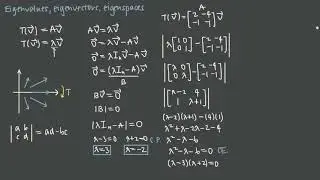 Eigenvalues, eigenvectors, eigenspaces
T(v⃗) = Av⃗
T(v⃗) = λv⃗
T
| a b |
| c d | = ad-bc
Av⃗ = λv⃗
O⃗ = λv⃗ - Av⃗
O⃗ = λIₙv⃗ - Av⃗
O⃗ = (λIₙ - A)v⃗
B
Bv⃗ = O⃗
|B| = 0
|λIₙ - A| = 0
λ-3=0 λ+2=0
λ=3 λ=-2
A
T(v⃗) = [2 -4]
[-1 -1] v⃗
|λ[1 0] - [2 -4]|
|[0 1] [-1 -1]|
|[λ 0] - [2 -4]|
|[0 λ] [-1 -1]|
|[λ-2 4]|
|[1 λ+1]|
(λ-2)(λ+1) - (4)(1)
λ² + λ - 2λ - 2 - 4
λ² - λ - 6 C.P.
λ² - λ - 6 = 0 C.E.
(λ-3)(λ+2) = 0